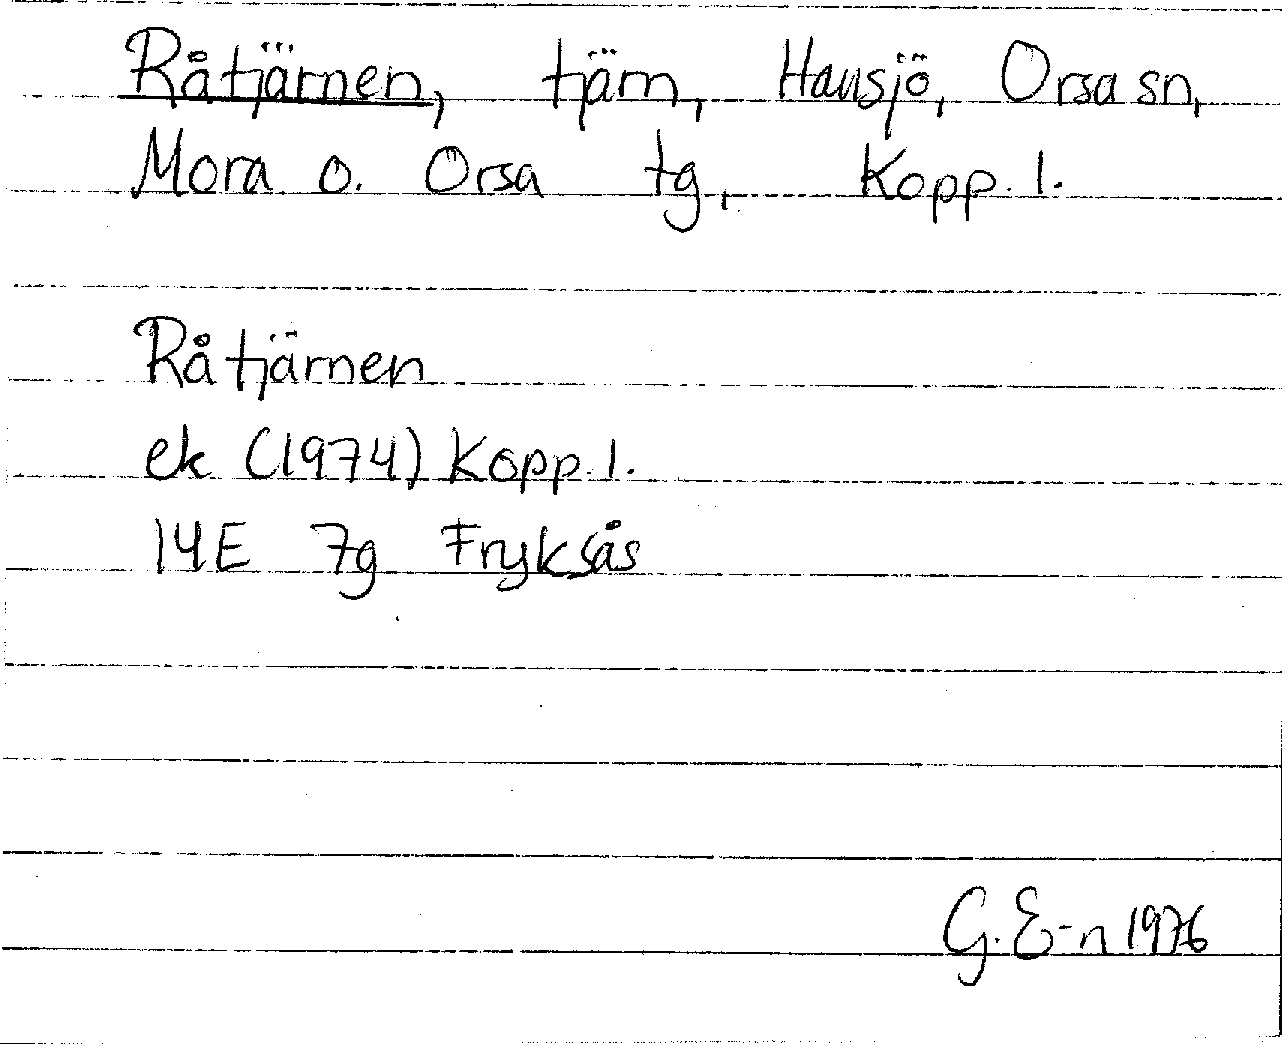 Råtjärnen, tjärn, Hansjö, Orsa sn,
Mora o. Orsa tg, Kopp. l.
Råtjärnen
ek (1974) Kopp. l.
14E 7g Fryksås
G. E-n 1976